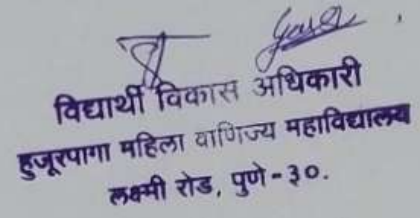 विद्यार्थी विकास अधिकारी
हुजूरपागा महिला वाणिज्य महाविद्यालय
लक्ष्मी रोड, पुणे - ३०.